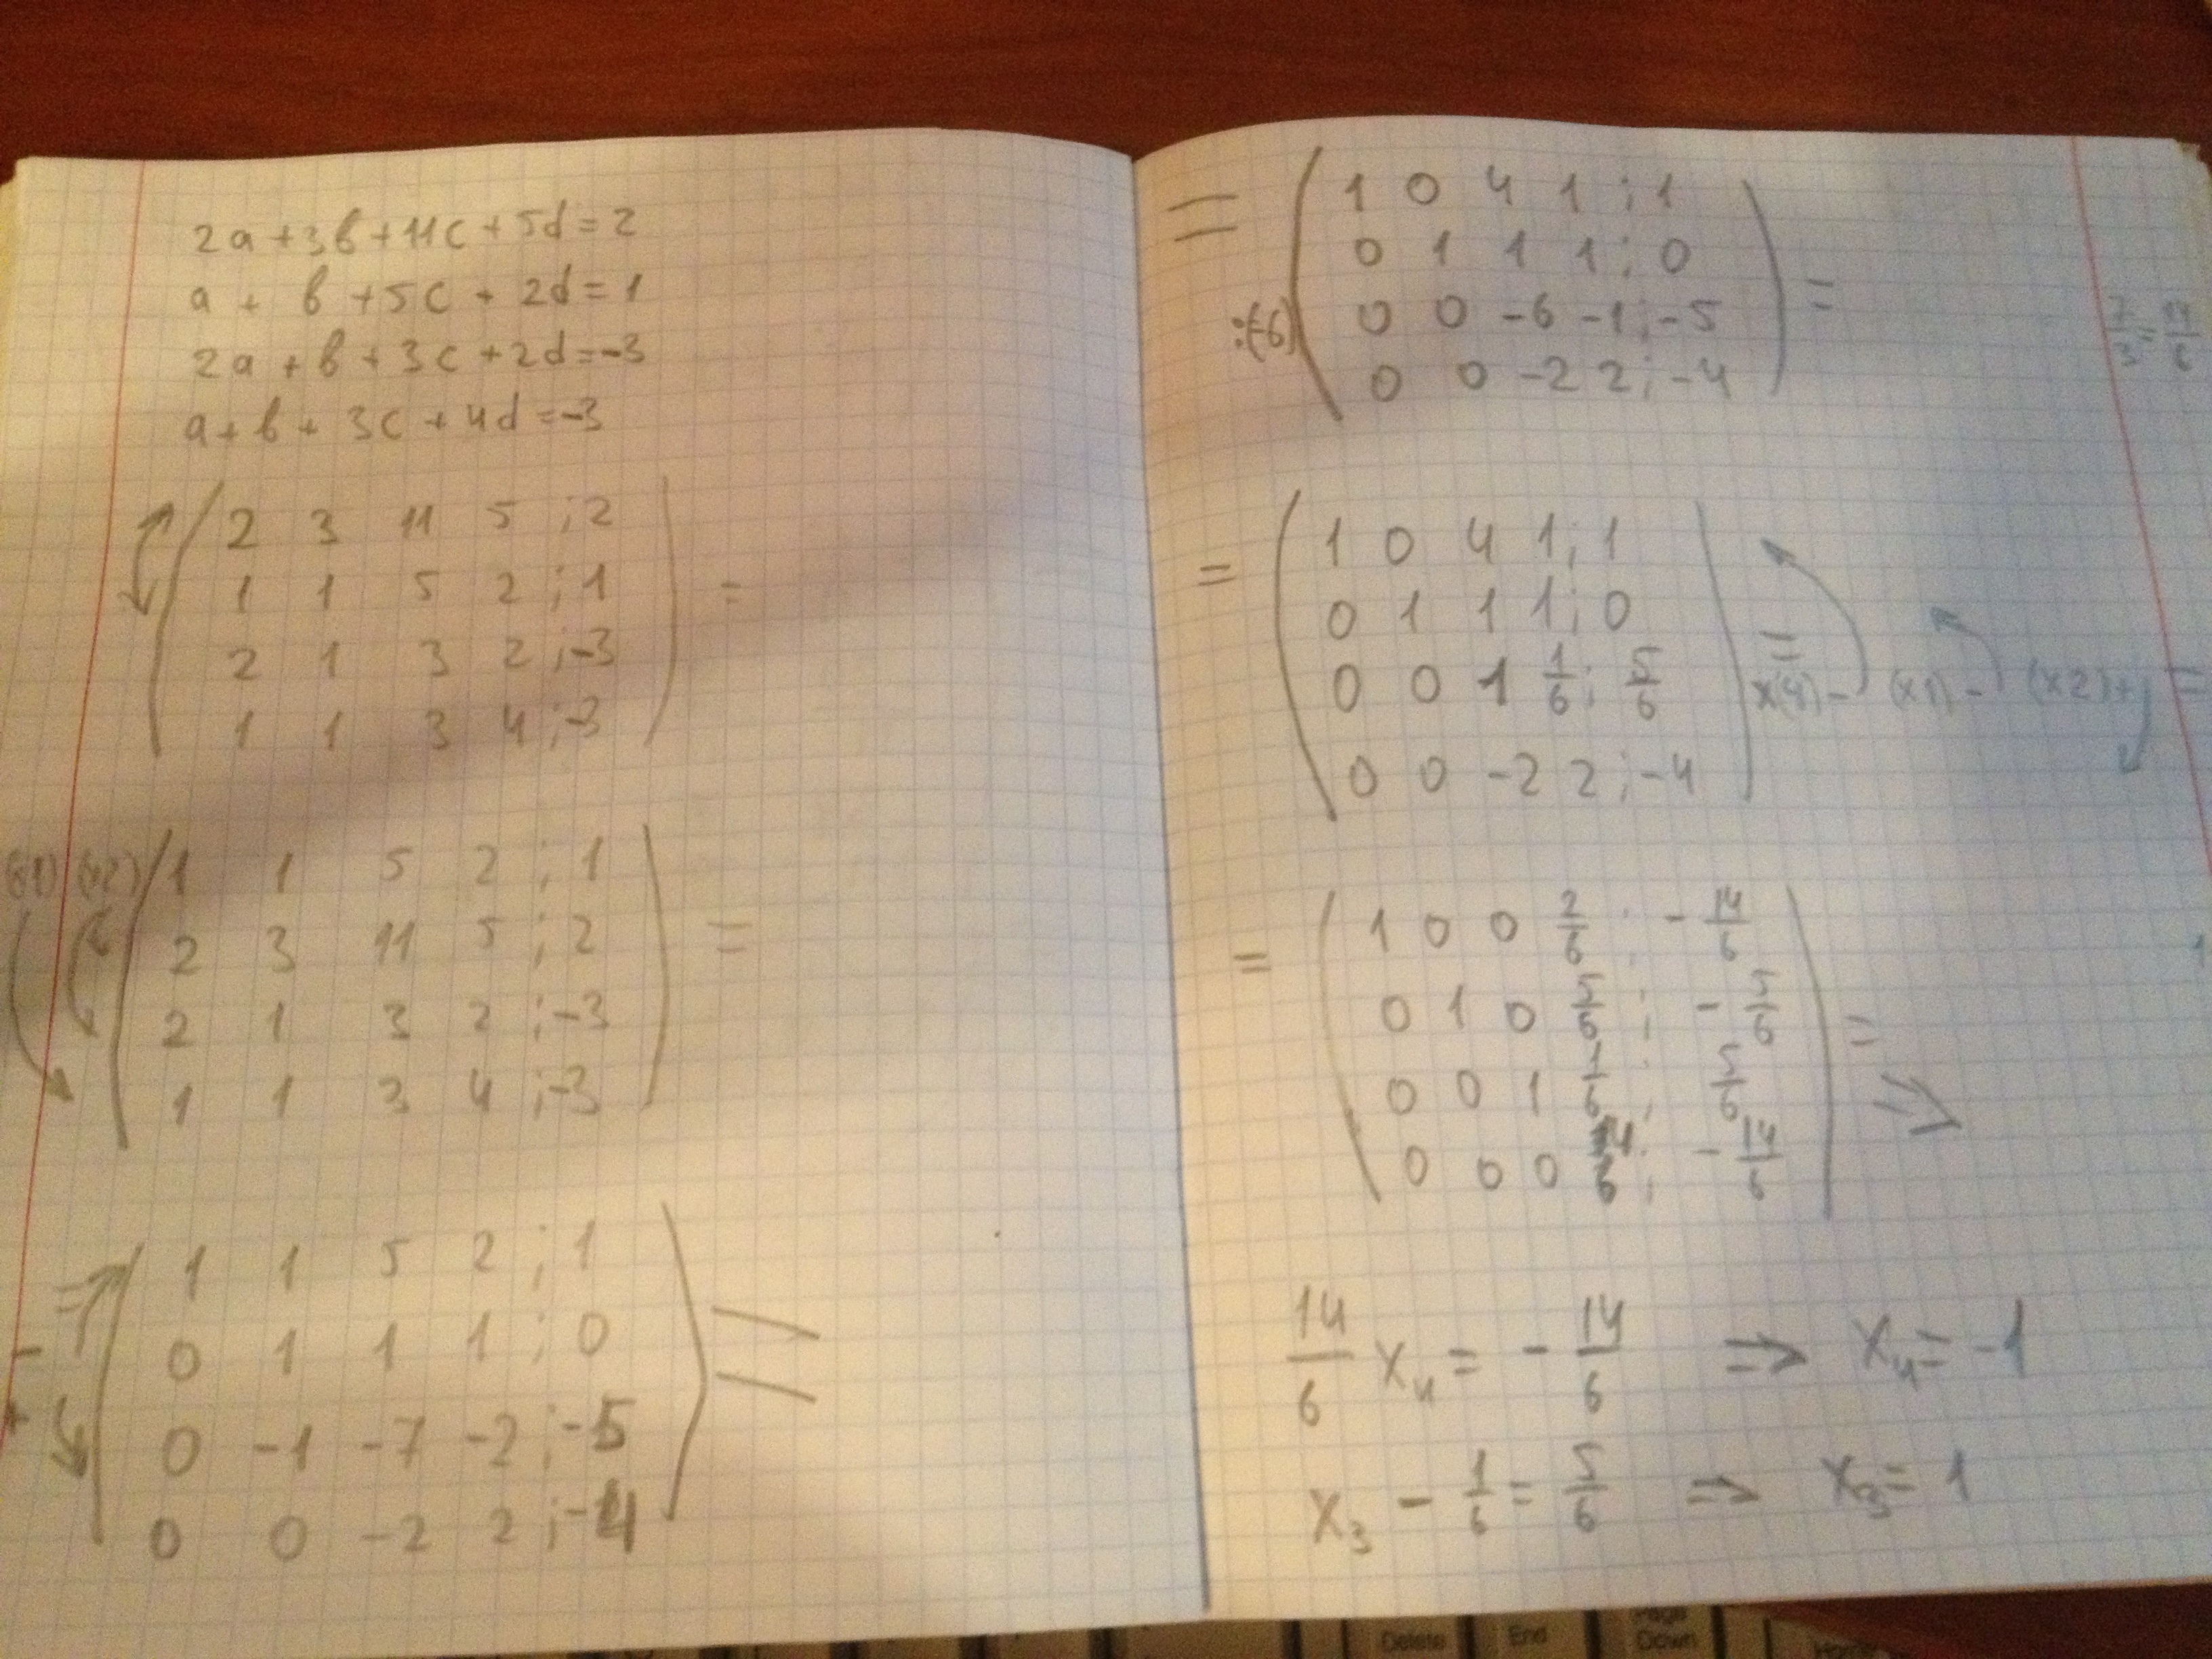 2a + 3b + 11c + 5d = 2
a + b + 5c + 2d = 1
2a + b + 3c + 2d = -3
a + b + 3c + 4d = -3
2 3 11 5 ; 2
1 1 5 2 ; 1 =
2 1 3 2 ; -3
1 1 3 4 ; -3
(x1) (x2) 1 1 5 2 ; 1
2 3 11 5 ; 2 =
2 1 3 2 ; -3
1 1 3 4 ; -3
= 1 1 5 2 ; 1
- 0 1 1 1 ; 0 =
+ 0 -1 -7 -2 ; -5
0 0 -2 2 ; -4
= 1 0 4 1 ; 1
0 1 1 1 ; 0 =
:(-6) 0 0 -6 -1 ; -5
0 0 -2 2 ; -4
7/3 = 14/6
1 0 4 1 ; 1
= 0 1 1 1 ; 0 =
0 0 1 1/6 ; 5/6 x(4) - (x1) - (x2) + =
0 0 -2 2 ; -4
= 1 0 0 2/6 ; -14/6
0 1 0 5/6 ; -5/6 =
0 0 1 1/6 ; 5/6 =>
0 0 0 14/6 ; -14/6
14/6 x4 = -14/6 => x4 = -1
x3 - 1/6 = 5/6 => x3 = 1
Delete End Page Down Home